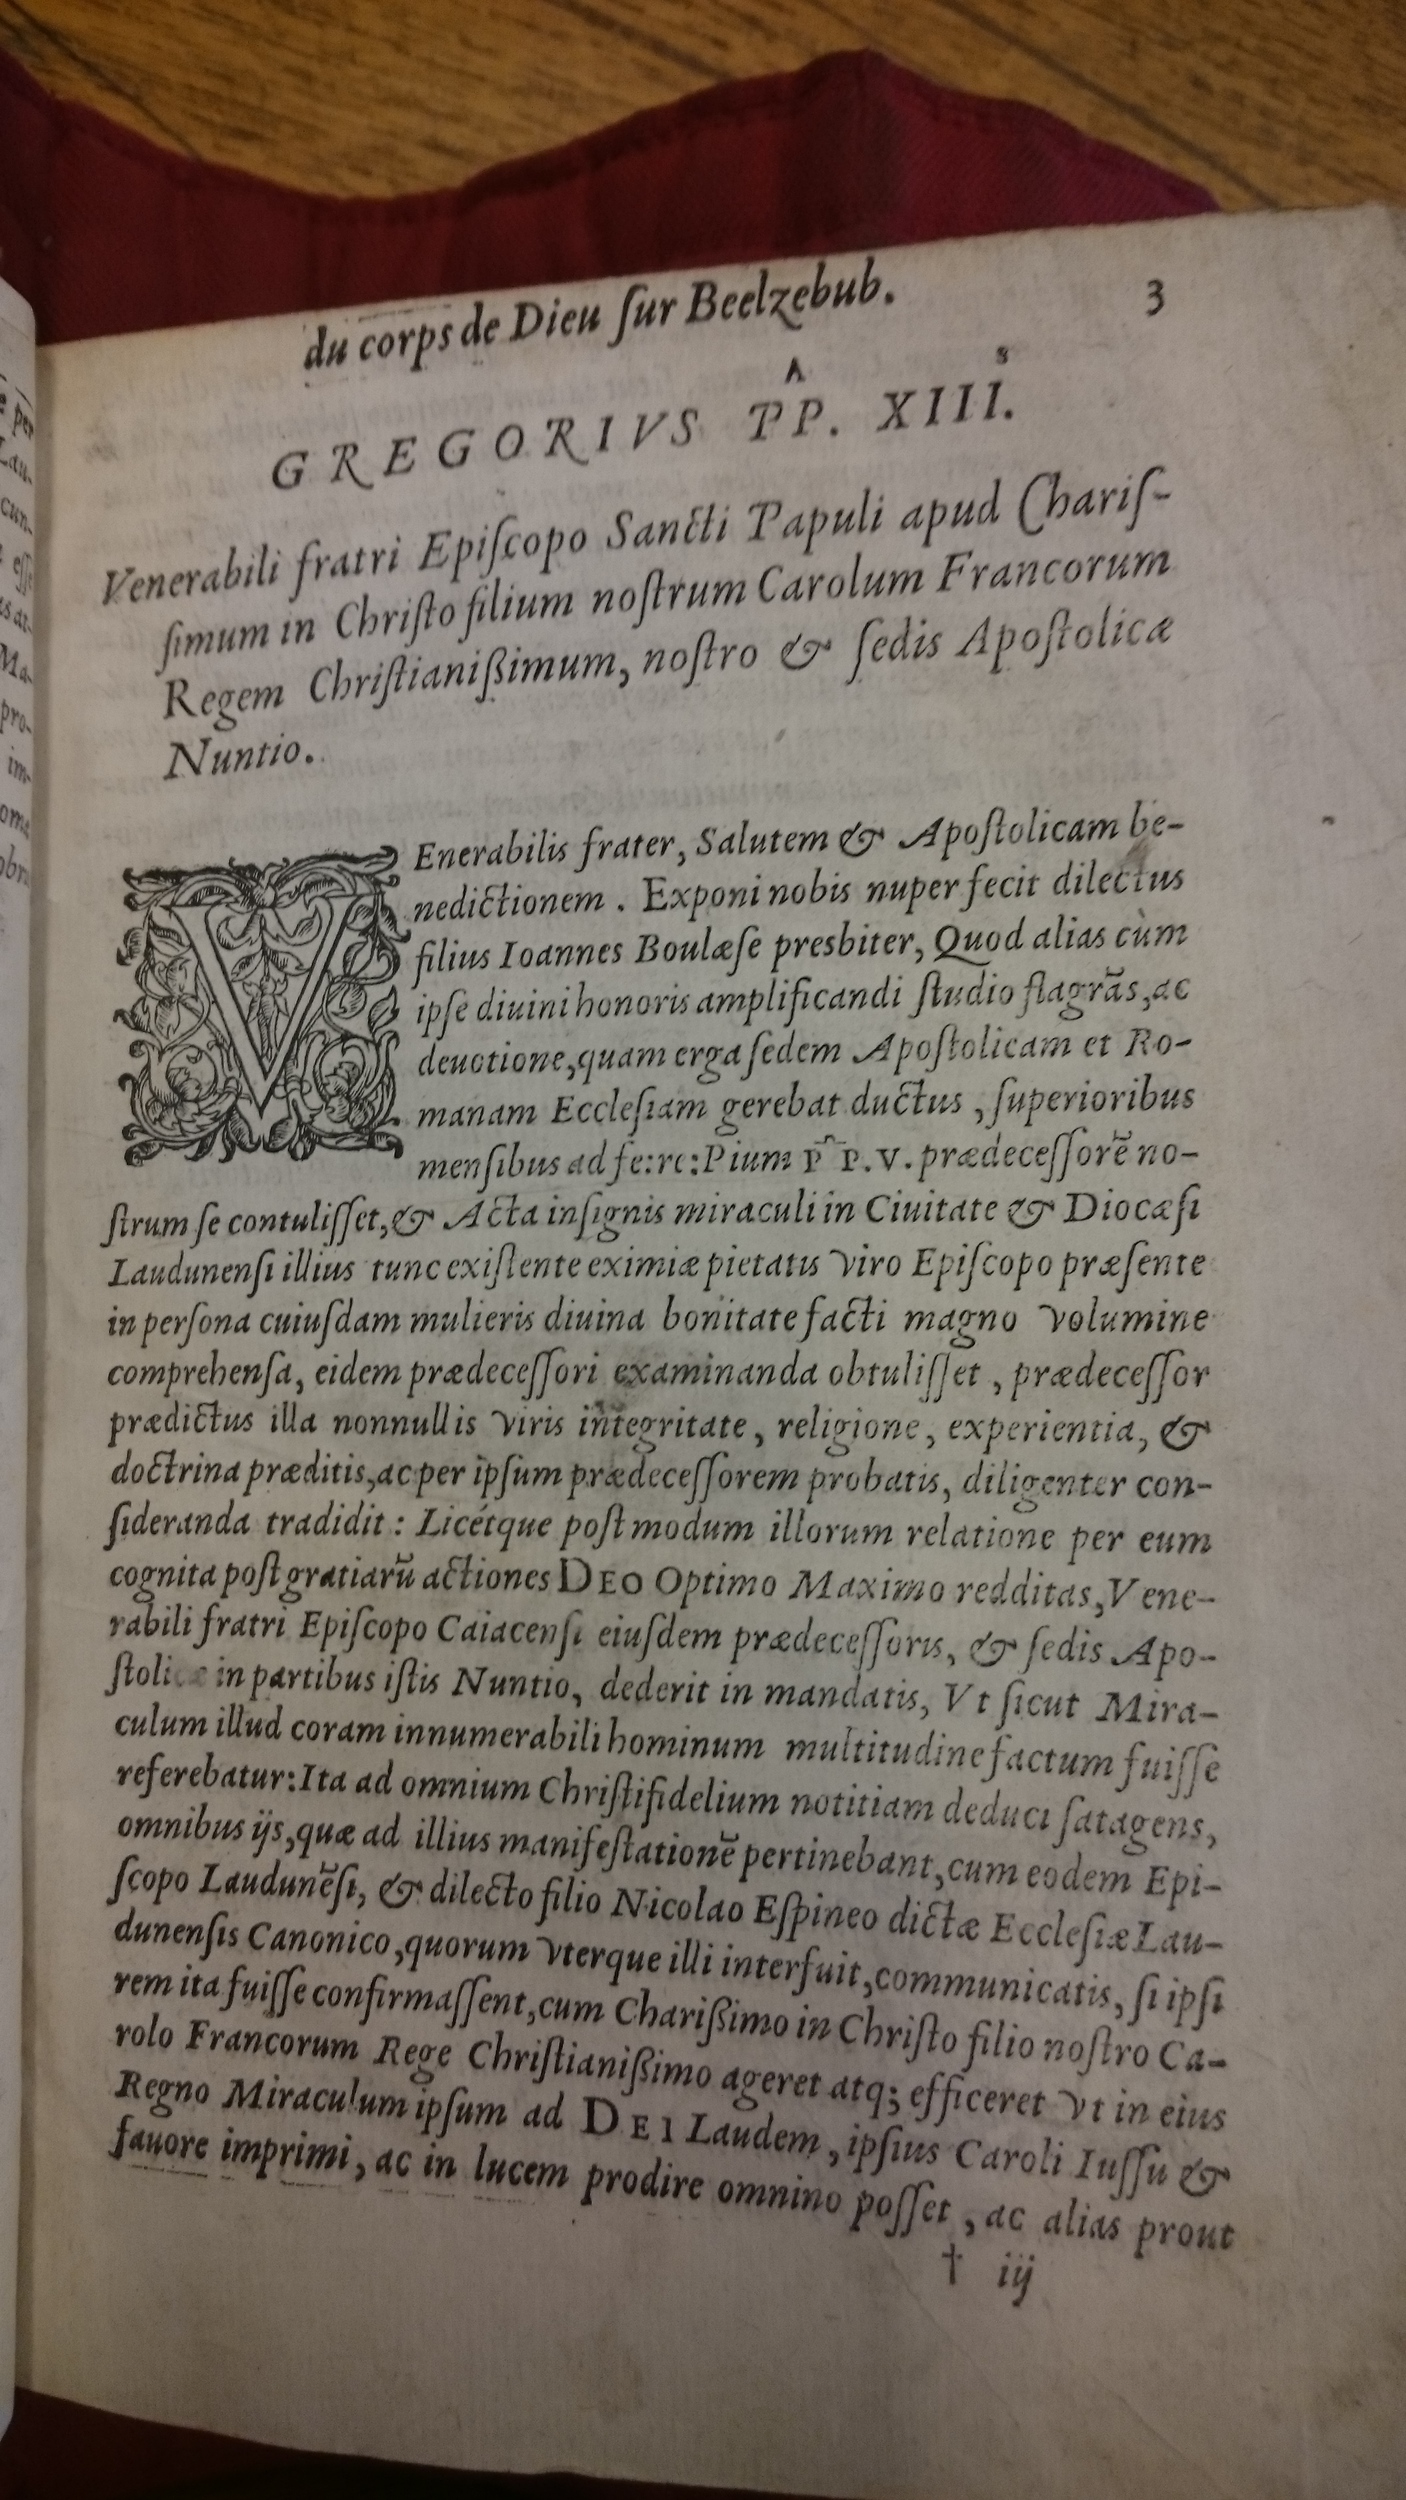 du corps de Dieu ſur Beelzebub. 3
GREGORIVS P̂P. XIII.s
Venerabili fratri Epiſcopo Sancti Papuli apud Chariſ-
ſimum in Chriſto filium noſtrum Carolum Francorum
Regem Chriſtianißimum, noſtro & ſedis Apoſtolicæ
Nuntio.
VEnerabilis frater, Salutem & Apoſtolicam be-
nedictionem. Exponi nobis nuper fecit dilectus
filius Ioannes Boulæſe presbiter, Quod alias cùm
ipſe diuini honoris amplificandi ſtudio flagrās, ac
deuotione, quam erga ſedem Apoſtolicam et Ro-
manam Eccleſiam gerebat ductus, ſuperioribus
menſibus ad fe:re:Pium P̑P.V. prædeceſſorē no-
ſtrum ſe contuliſſet, & Acta inſignis miraculi in Ciuitate & Diocæſi
Laudunenſi illius tunc exiſtente eximiæ pietatis viro Epiſcopo præſente
in perſona cuiuſdam mulieris diuina bonitate facti magno volumine
comprehenſa, eidem prædeceſſori examinanda obtuliſſet, prædeceſſor
prædictus illa nonnullis viris integritate, religione, experientia, &
doctrina præditis, ac per ipſum prædeceſſorem probatis, diligenter con-
ſideranda tradidit: Licétque poſtmodum illorum relatione per eum
cognita poſt gratiarū actiones DEO Optimo Maximo redditas, Vene-
rabili fratri Epiſcopo Caiacenſi eiuſdem prædeceſſoris, & ſedis Apo-
ſtolicæ in partibus iſtis Nuntio, dederit in mandatis, Vt ſicut Mira-
culum illud coram innumerabili hominum multitudine factum fuiſſe
referebatur: Ita ad omnium Chriſtifidelium notitiam deduci ſatagens,
omnibus ijs, quæ ad illius manifeſtationē pertinebant, cum eodem Epi-
ſcopo Laudunēſi, & dilecto filio Nicolao Eſpineo dictæ Eccleſiæ Lau-
dunenſis Canonico, quorum vterque illi interfuit, communicatis, ſi ipſi
rem ita fuiſſe confirmaſſent, cum Charißimo in Chriſto filio noſtro Ca-
rolo Francorum Rege Chriſtianißimo ageret atq; efficeret vt in eius
Regno Miraculum ipſum ad DEI Laudem, ipſius Caroli Iuſſu &
fauore imprimi, ac in lucem prodire omnino poſſet, ac alias prout
† iij